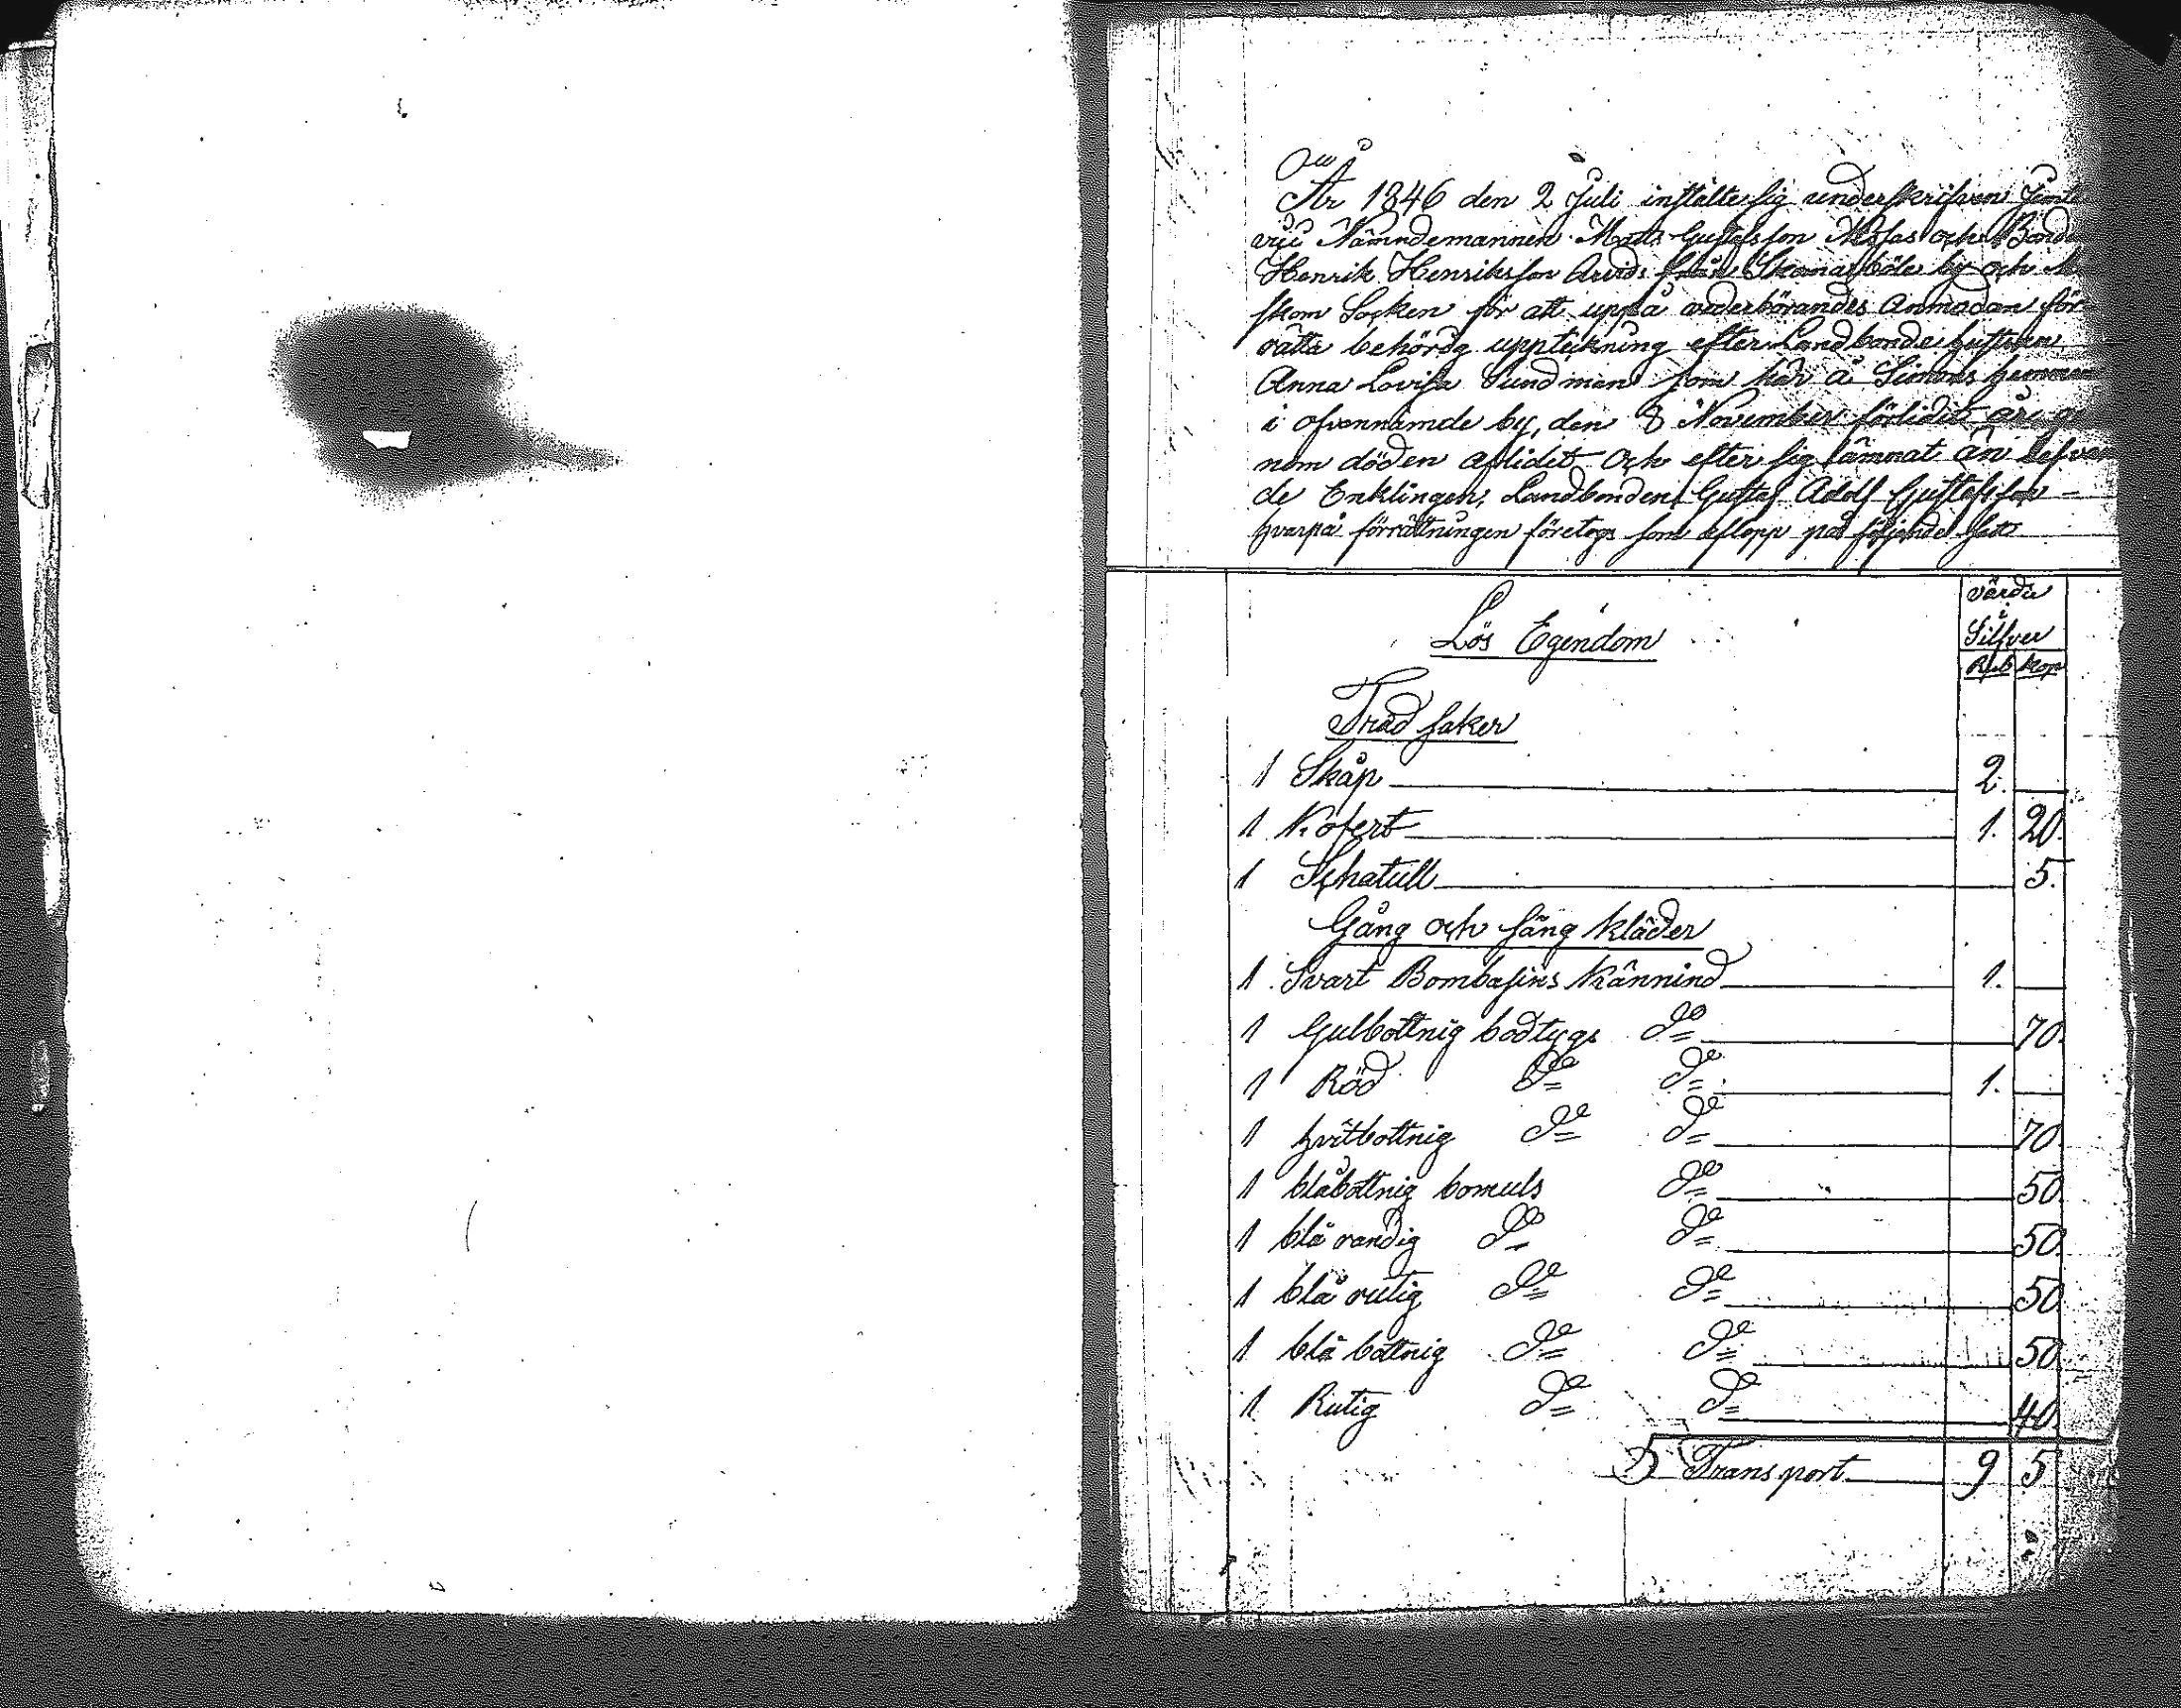 År 1846 den 2 Juli instälte sig underskrifven Jemte
vice Nämndemannen Matts Gustafsson och Bonden
Henrik Henriksson Arvids från Skomarböle by och
skom Socken för att uppå vederbörandes Anmodan för
rätta behörig uppteckning efter Landbondehustrun
Anna Lovisa Sundman som här å Simons hemman
i ofvannämde by, den 8 November förlidit år ge
nom döden aflidit och efter sig lämnat än lefvan
de Enklingen, Landbonden Gustaf Adolf Gustafsson
hvarpå förrättningen företogs som aflopp på följande sätt
värde
i
Silfver
Lös Egendom
Rub kop
Träd saker
1 Skåp 2.
1 Kofert 1. 20.
1 Schatull 5.
Gång och säng kläder
1 Svart Bombasins Kännind 1.
1 Gulbottnig bodtygs Do 70.
1 Röd Do Do 1.
1 hvitbottnig Do Do 70.
1 blåbottnig bomuls Do 50.
1 blå randig Do Do 50.
1 blå rutig Do Do 50
1 blå bottnig Do Do 50
1 Rutig Do Do 40.
Transport 9 5